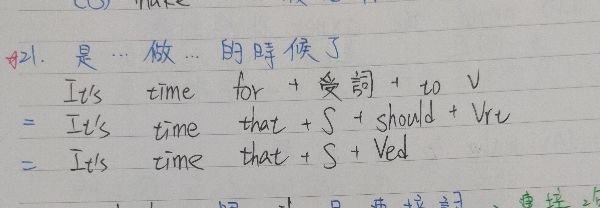 (3) make
☆21. 是…做…的時候了
It's time for + 受詞 + to V
= It's time that + S + should + Vrt
= It's time that + S + Ved